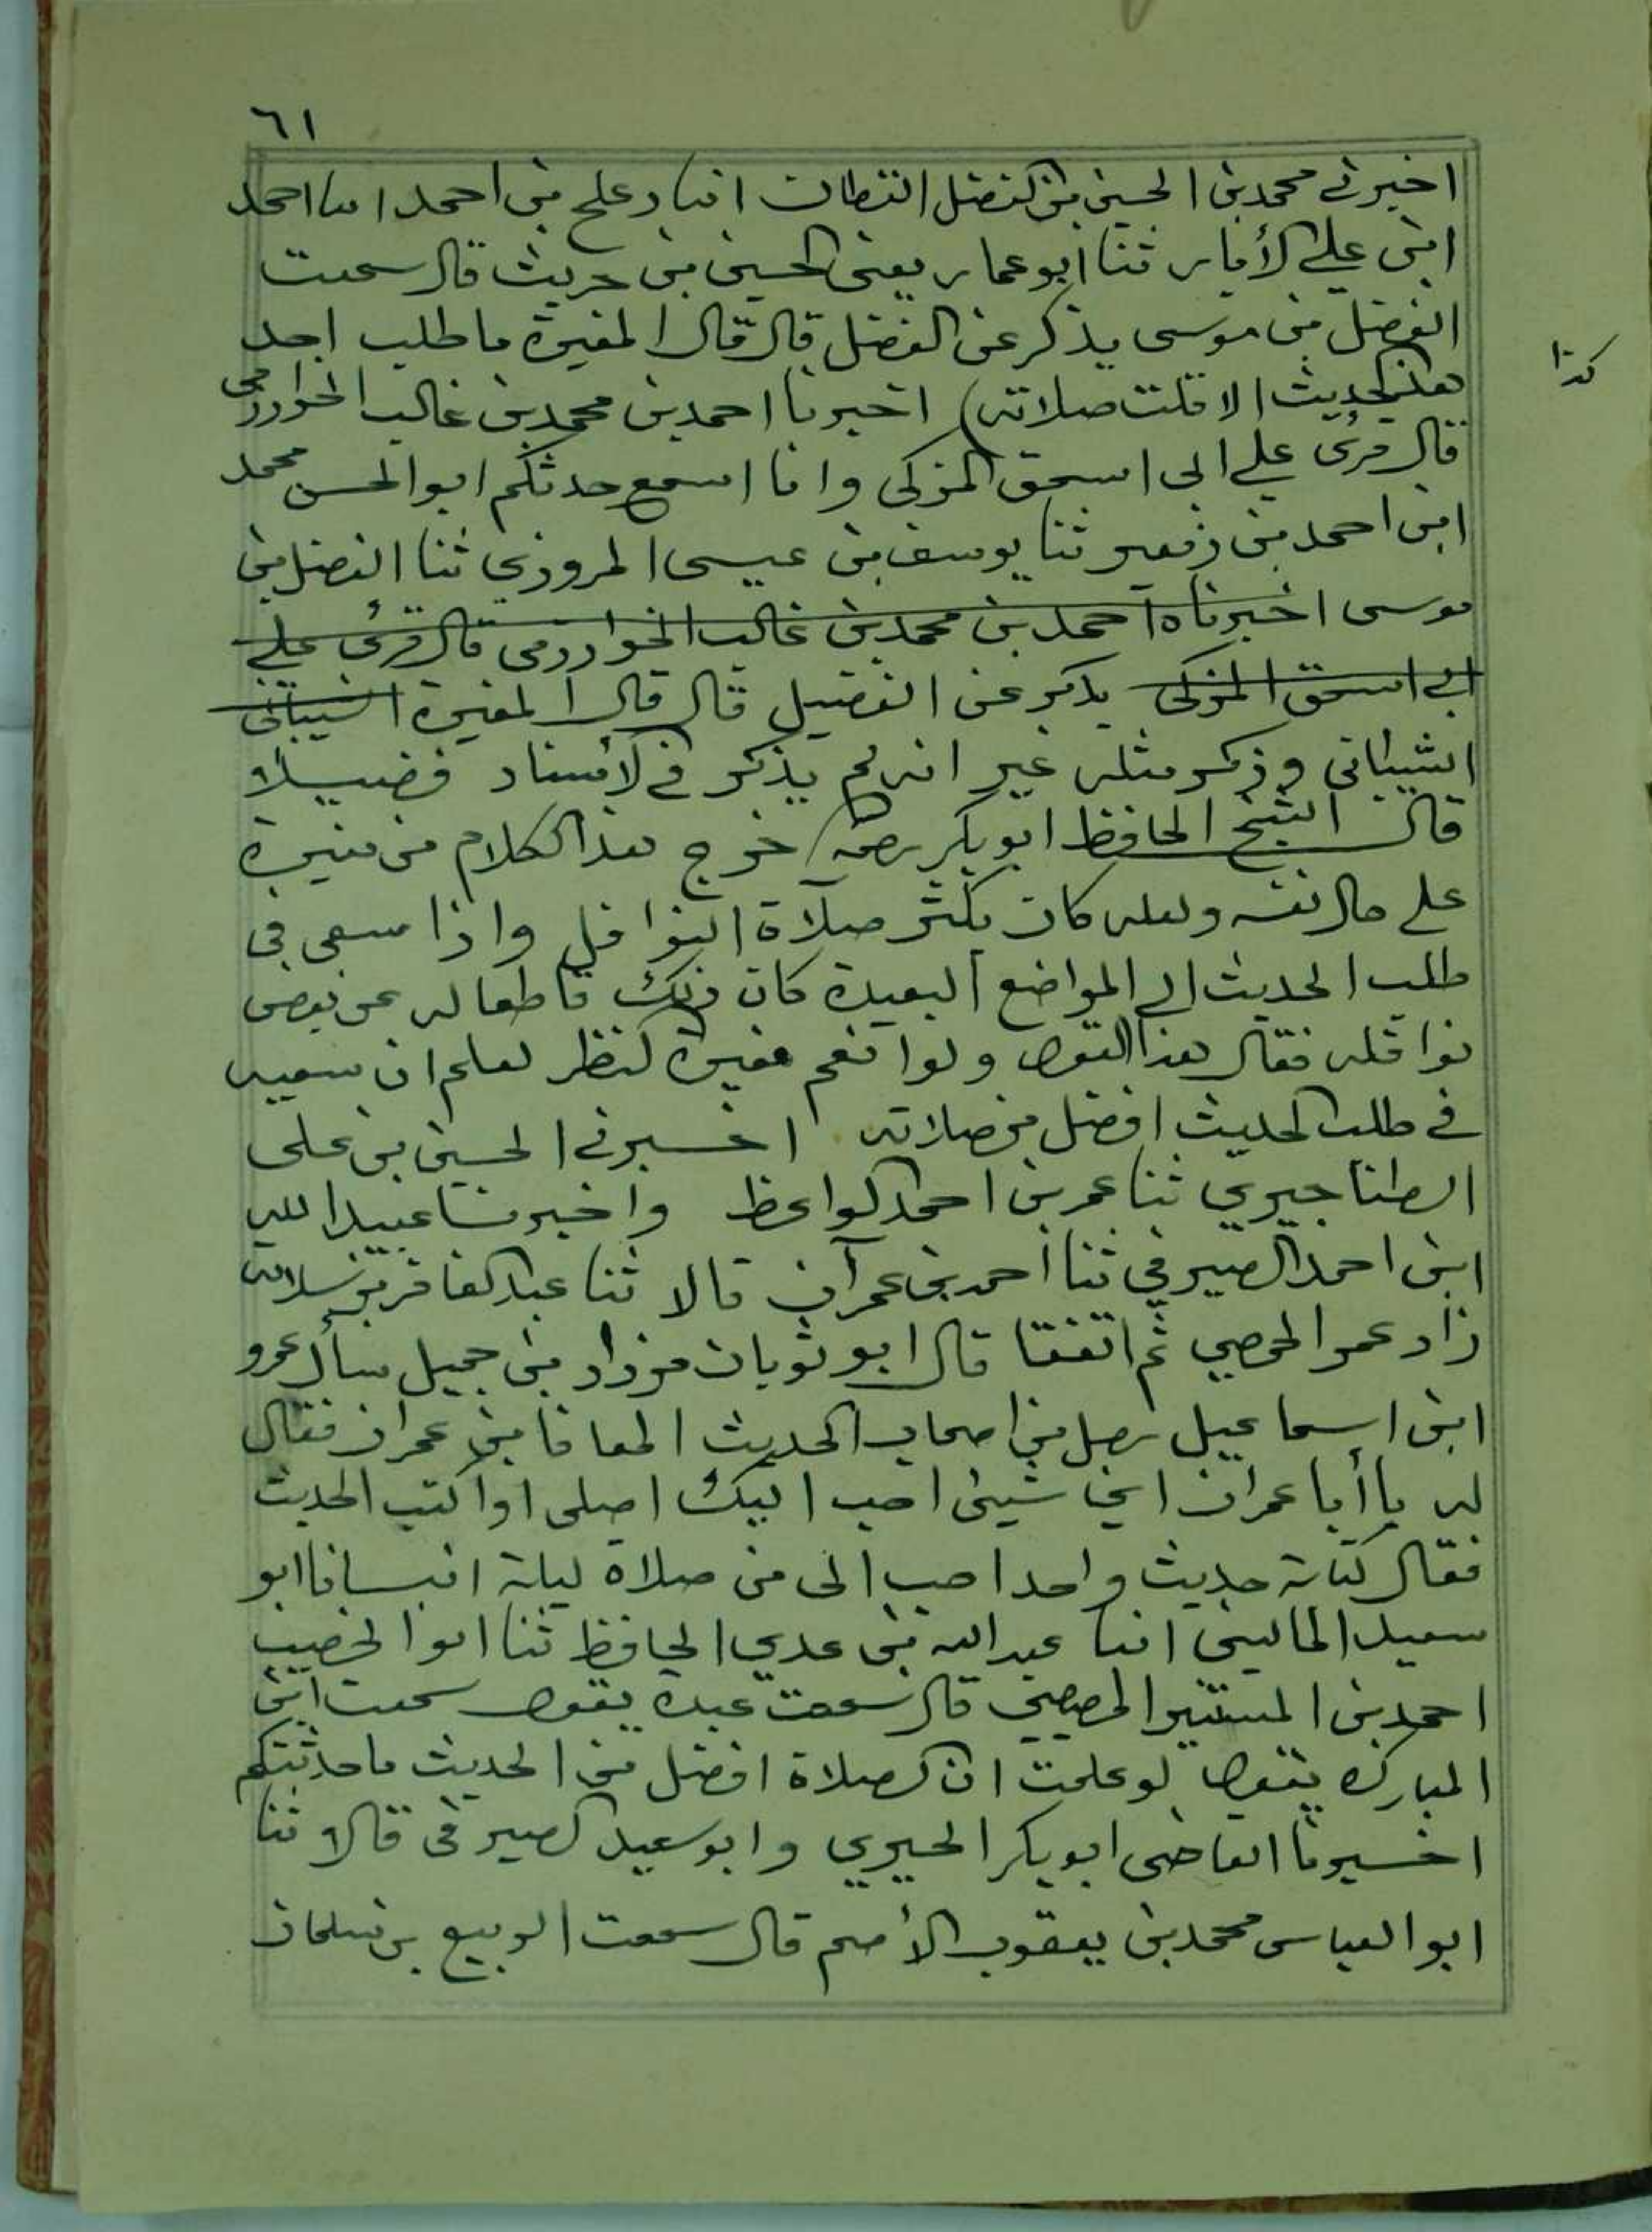 ٦١
اخبرني محمد بن الحسين بن الفضل القطان انبا دعلج بن احمد انبا احمد
ابن علي الأبار ثنا ابو عمار يعنى الحسين بن حريث قال سمعت
الفضل بن موسى يذكر عن الفضل قال قال المغيرة ما طلب احد
كذا
هذا الحديث الا قلت صلاته) اخبرنا احمد بن محمد بن غالب الخوارزمي
قال قرئ على ابي اسحق المزكى وانا اسمع حدثكم ابو الحسن محمد
ابن احمد بن زهير ثنا يوسف بن عيسى المروزي ثنا الفضل بن
موسى اخبرناه احمد بن محمد بن غالب الخوارزمى قال قرئ علي
ابي اسحق المزكى يذكر عن الفضيل قال قال المغيرة الشيبانى
الشيبانى وذكر مثله غير انه لم يذكر في الأسناد فضيلا
قال الشيخ الحافظ ابو بكر رحمه خرج هذا الكلام من مغيرة
على حال نفسه ولعله كان يكثر صلاة النوافل واذا سعى في
طلب الحديث الى المواضع البعيدة كان ذلك قاطعا له عن بعض
نوافله فقال هذا القول ولو انعم مغيرة النظر لعلم ان سعيه
في طلب الحديث افضل من صلاته اخبرني الحسين بن علي
الطناجيري ثنا عمر بن احمد الواعظ واخبرنا عبيد الله
ابن احمد الصيرفي ثنا احمد بن عمران قالا ثنا عبد الغافر بن سلامة
زاد عمر الحمصي ثم اتفقا قال ابو ثوبان مزداد بن جميل سأل عمرو
ابن اسماعيل رجل من اصحاب الحديث المعافا بن عمران فقال
له يا أبا عمران اي شيئ احب اليك اصلى او اكتب الحديث
فقال كتابة حديث واحد احب الى من صلاة ليلة انبانا ابو
سعيد الماليني انبا عبد الله بن عدي الحافظ ثنا ابو الخصيب
احمد بن المستنير المصيصي قال سمعت عبدة يقول سمعت ابن
المبارك يقول لو علمت ان الصلاة افضل من الحديث ما حدثتكم
اخبرنا القاضى ابو بكر الحيري وابو سعيد الصيرفى قالا ثنا
ابو العباس محمد بن يعقوب الأصم قال سمعت الربيع بن سليمان